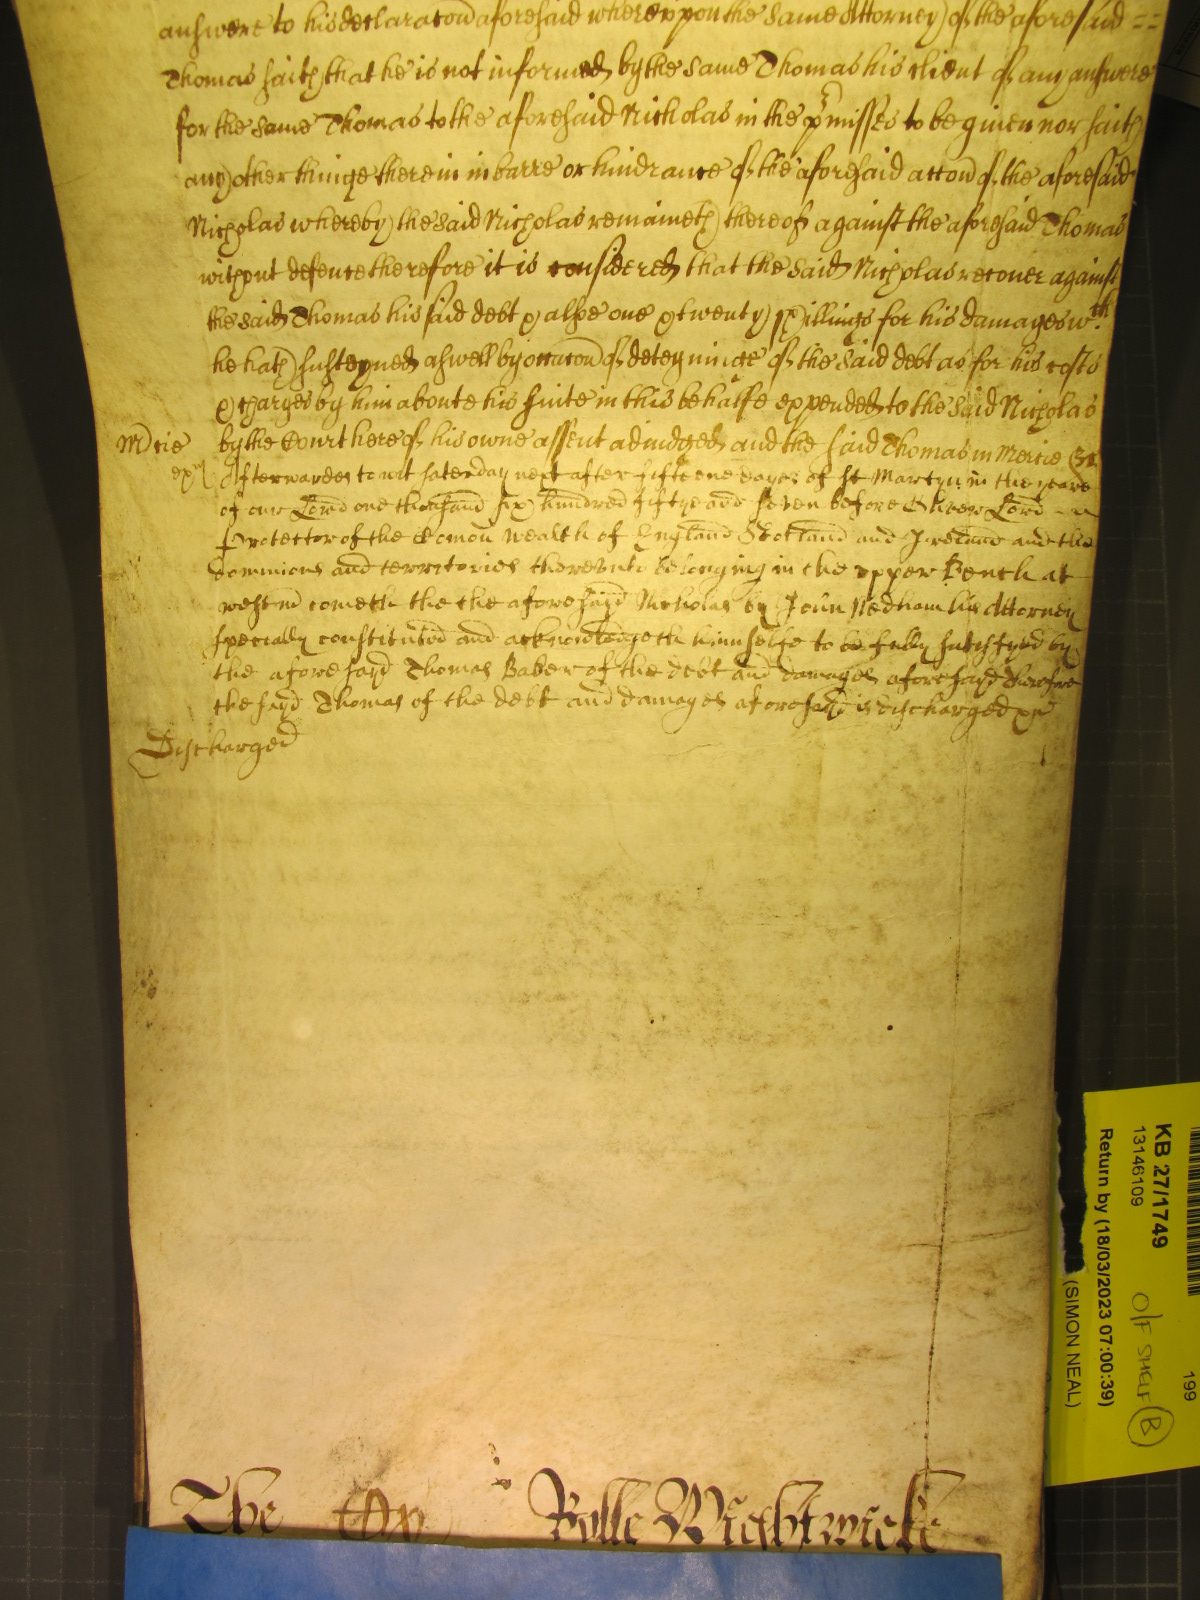 answere to his declaracon aforesaid whereuppon the same Attorney of the aforesaid ==
Thomas saith that he is not informed by the same Thomas his client of any answere
for the same Thomas to the aforesaid Nicholas in the p'misses to be given nor saith
any other thinge therein in barre or hindrance of the aforesaid accon of the aforesaid
Nicholas whereby the said Nicholas remaineth thereof against the aforesaid Thomas
without defence therefore it is considered that the said Nicholas recover against
the said Thomas his said debt & alsoe one & twenty shillings for his damages wth
he hath susteyned aswell by occacon of deteyninge of the said debt as for his costs
& charges by him aboute his suite in this behalfe expended to the said Nicholas
Mcie by the Court here of his owne assent adiudged and the said Thomas in Mercie &c
Afterwardes to wit saterday next after fifteene dayes of St Martyn in the yeare
of our Lord one thousand six hundred fiftye and seven before Oliver Lord
Protector of the Comon wealth of England Scotland and Ireland and the
dominions and territories thereunto belonging in the upper Bench at
westm cometh the the aforesayd Nicholas by John Nedham his Attorney
specially constituted and acknowledgeth himselfe to be fully satisfyed by
the aforesayd Thomas Baber of the debt and damages aforesayd therefore
the sayd Thomas of the debt and damages aforesayd is discharged &c
Discharged
The Rolle Wightwicke
KB 27/1749
13146109
Return by (18/03/2023 07:00:39)
(SIMON NEAL)
O/F SHELF B
199